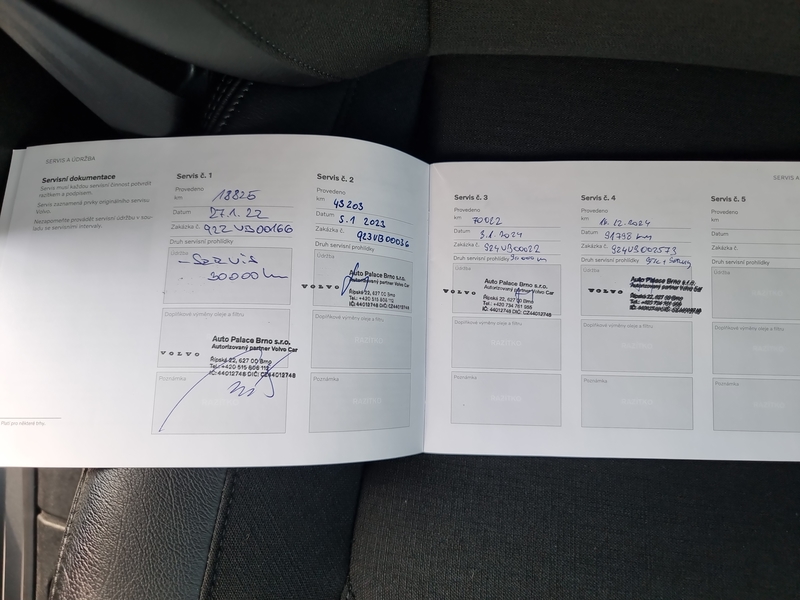 SERVIS A ÚDRŽBA
Servisní dokumentace
Servis musí každou servisní činnost potvrdit
razítkem a podpisem.
Servis zaznamená prvky originálního servisu
Volvo.
Nezapomeňte provádět servisní údržbu v sou-
ladu se servisními intervaly.
Servis č. 1
Provedeno
km 18825
Datum 27.1.22
Zakázka č. 922VB00166
Druh servisní prohlídky
Údržba
- SERVIS
30000 km
Doplňkové výměny oleje a filtru
VOLVO
Auto Palace Brno s.r.o.
Autorizovaný partner Volvo Car
Řípská 22, 627 00 Brno
Tel.: +420 515 606 112
IČ: 44012748 DIČ: CZ44012748
Poznámka
Servis č. 2
Provedeno
km 43203
Datum 5.1 2023
Zakázka č. 923VB00036
Druh servisní prohlídky
Údržba
VOLVO
Auto Palace Brno s.r.o.
Autorizovaný partner Volvo Car
Řípská 22, 627 00 Brno
IČ: 44012748 DIČ: CZ44012748
Doplňkové výměny oleje a filtru
Poznámka
Servis č. 3
Provedeno
km 70022
Datum 3.1.2024
Zakázka č. 924VB00022
Druh servisní prohlídky
Údržba
VOLVO
Auto Palace Brno s.r.o.
Autorizovaný partner Volvo Car
Řípská 22, 627 00 Brno
Tel.: +420 734 761 966
IČ: 44012748 DIČ: CZ44012748
Doplňkové výměny oleje a filtru
Poznámka
SERVIS A
Servis č. 4
Provedeno
km 16.12.2024
Datum 91798 km
Zakázka č. 924VB002573
Druh servisní prohlídky
Údržba
VOLVO
Auto Palace Brno s.r.o.
Autorizovaný partner Volvo Car
Doplňkové výměny oleje a filtru
Poznámka
Servis č. 5
Provedeno
km
Datum
Zakázka č.
Druh servisní prohlídky
Údržba
Doplňkové výměny oleje a filtru
Poznámka